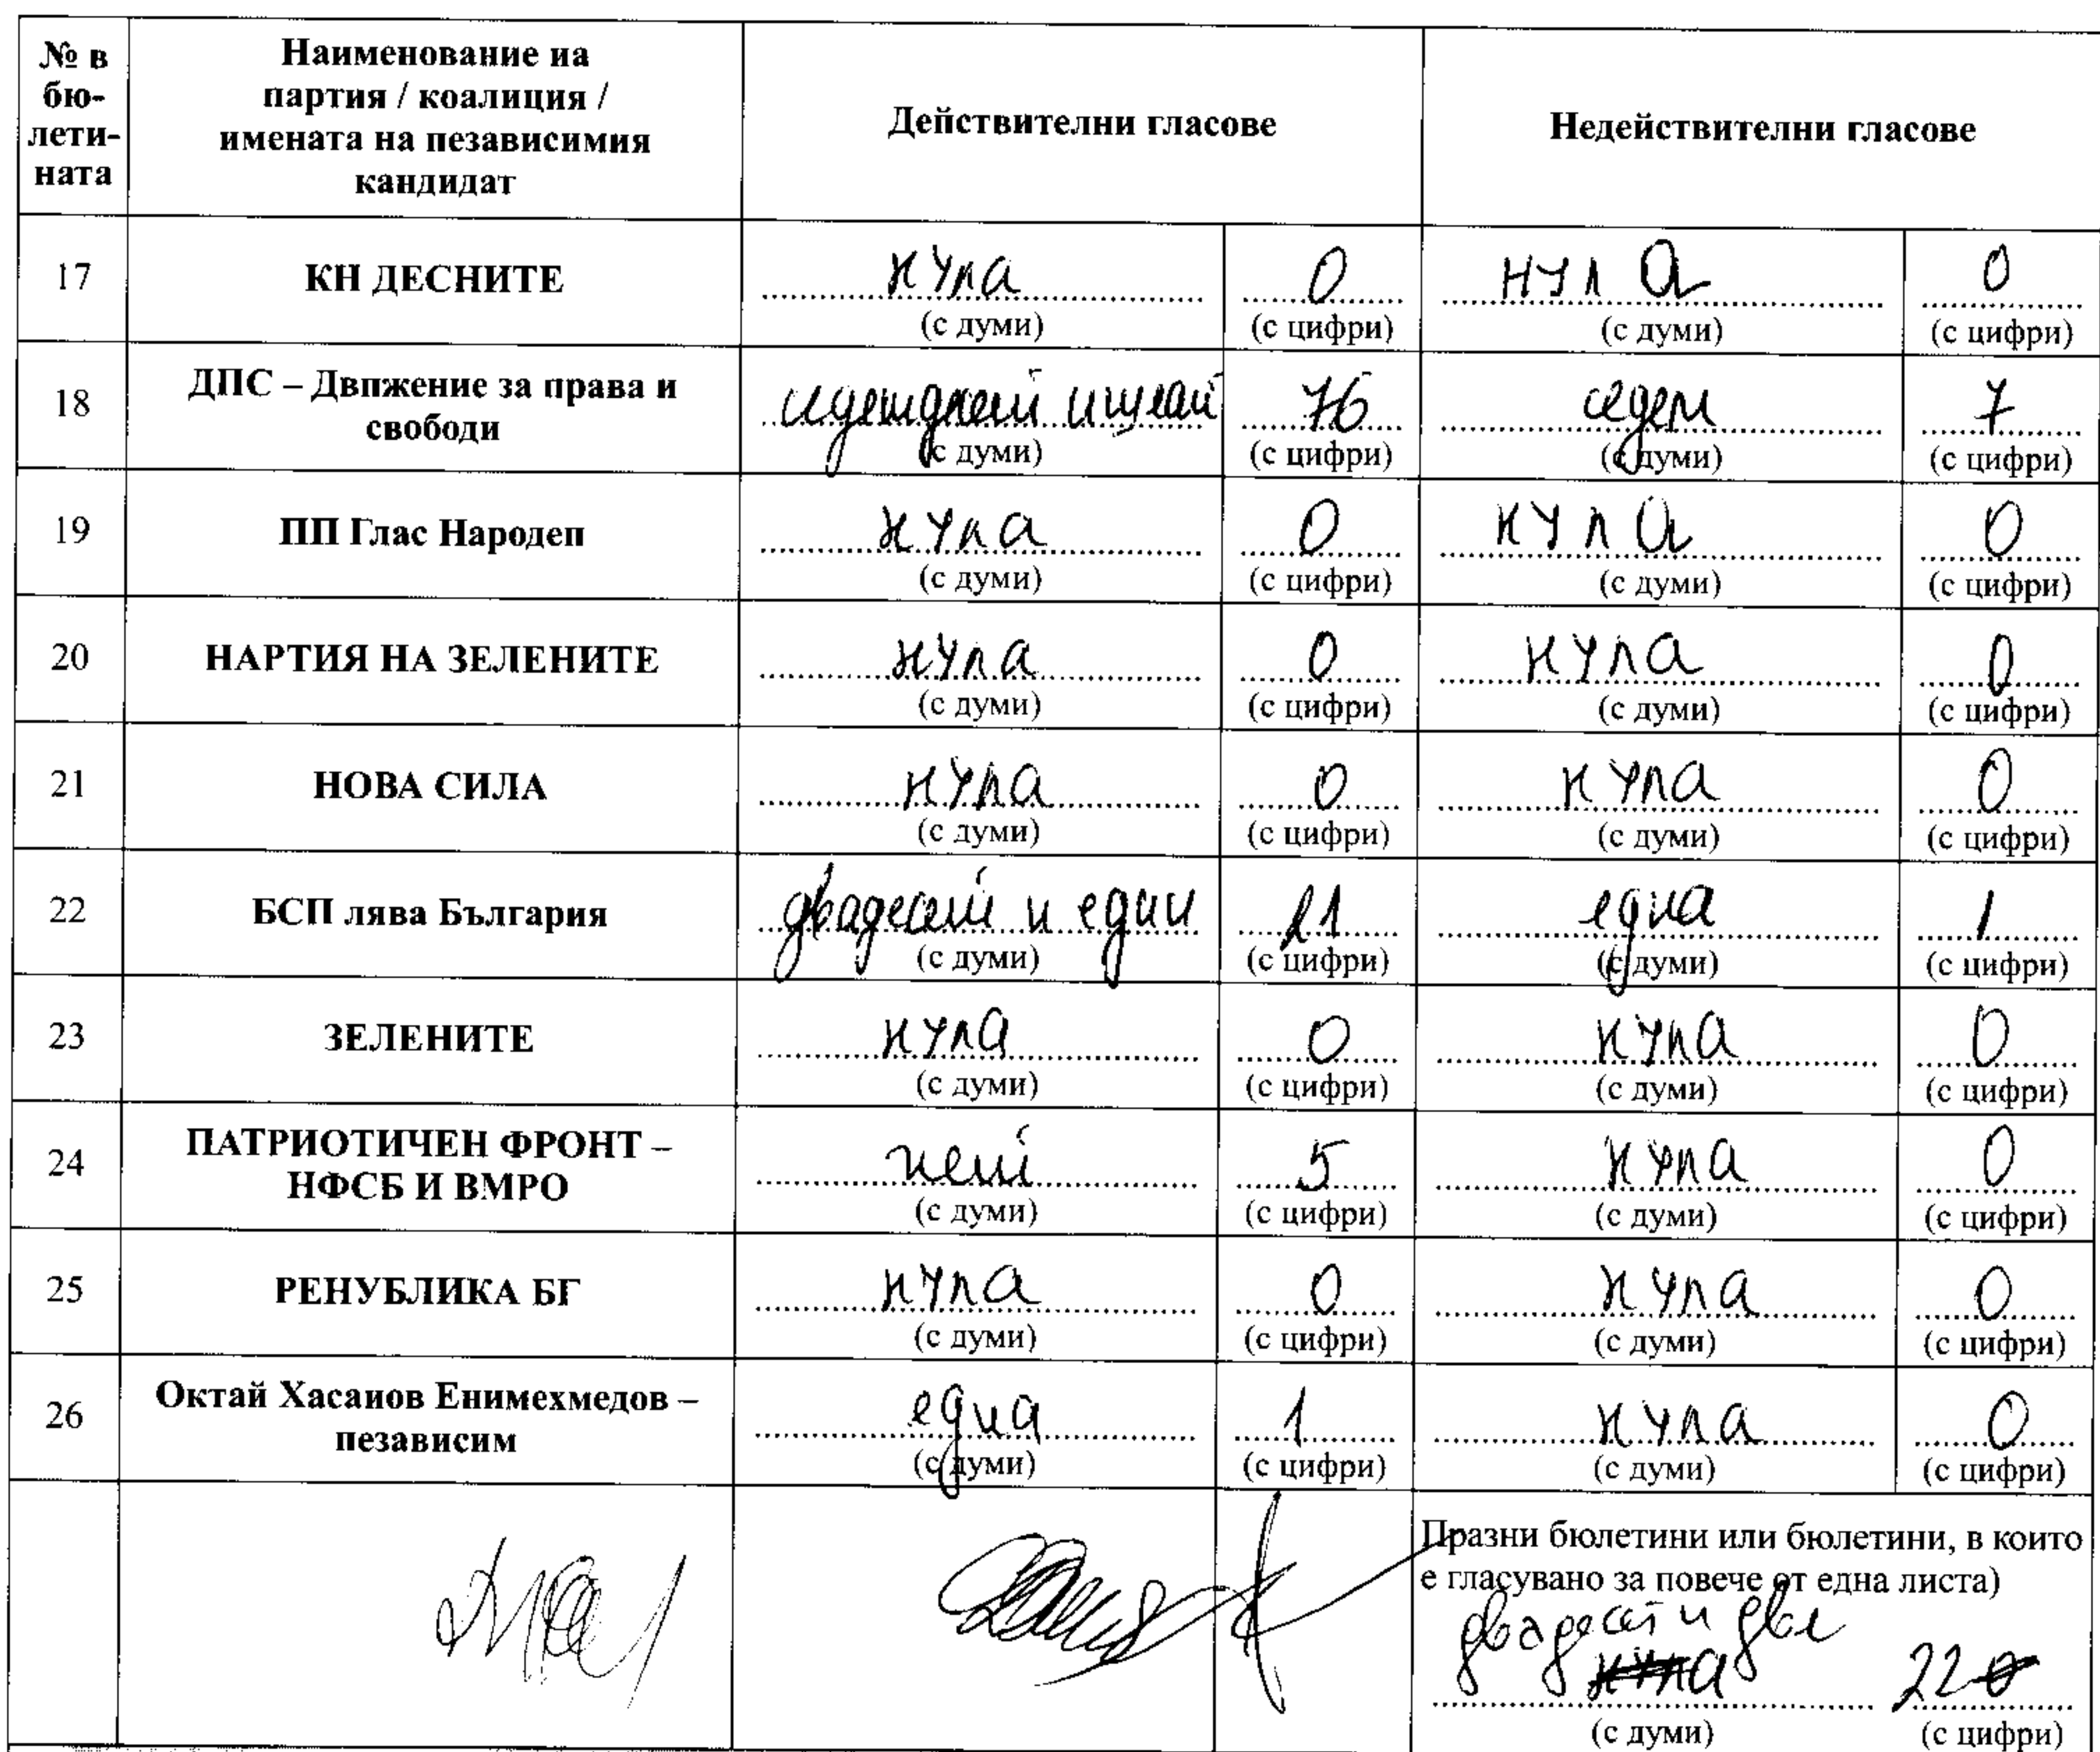 № в бю-лети-ната
Наименование иа партия / коалиция / имената на пезависимия кандидат
Действителни гласове
Недействителни гласове
17 КН ДЕСНИТЕ нула 0 нула 0
(с думи) (с цифри) (с думи) (с цифри)
18 ДПС – Двпжение за права и свободи седемдесет и шест 76 седем 7
(с думи) (с цифри) (с думи) (с цифри)
19 ПП Глас Народеп нула 0 нула 0
(с думи) (с цифри) (с думи) (с цифри)
20 НАРТИЯ НА ЗЕЛЕНИТЕ нула 0 нула 0
(с думи) (с цифри) (с думи) (с цифри)
21 НОВА СИЛА нула 0 нула 0
(с думи) (с цифри) (с думи) (с цифри)
22 БСП лява България двадесет и един 21 една 1
(с думи) (с цифри) (с думи) (с цифри)
23 ЗЕЛЕНИТЕ нула 0 нула 0
(с думи) (с цифри) (с думи) (с цифри)
24 ПАТРИОТИЧЕН ФРОНТ – НФСБ И ВМРО пет 5 нула 0
(с думи) (с цифри) (с думи) (с цифри)
25 РЕНУБЛИКА БГ нула 0 нула 0
(с думи) (с цифри) (с думи) (с цифри)
26 Октай Хасаиов Енимехмедов – пезависим една 1 нула 0
(с думи) (с цифри) (с думи) (с цифри)
Празни бюлетини или бюлетини, в които
е гласувано за повече от една листа)
двадесет и две
нула 22 0
(с думи) (с цифри)